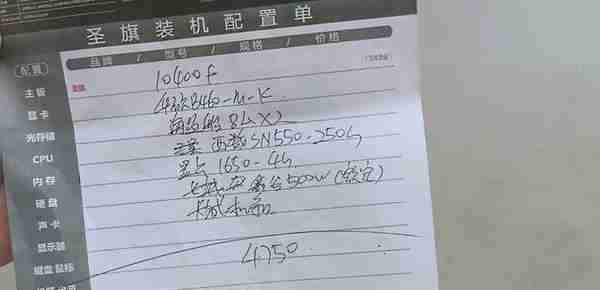 圣旗装机配置单
品牌 / 型号 / 规格 / 价格
配置
主板
显卡
光存储
CPU
内存
硬盘
声卡
显示器
键盘 鼠标
10400f
华硕B460-M-K
8G X2
西数SN550-250G
1650-4G
500W (额定)
长城机箱
4750